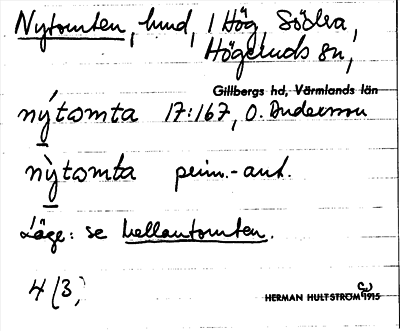 Nytomten, hmd, 1 Hög, Södra,
Högeruds sn,
Gillbergs hd, Värmlands län
nýtomta 17:167, O. Anderson
nỳtomta prim.-ant.
Läge: se hellantomten.
4 (3;
HERMAN HULTSTRÖM 1915